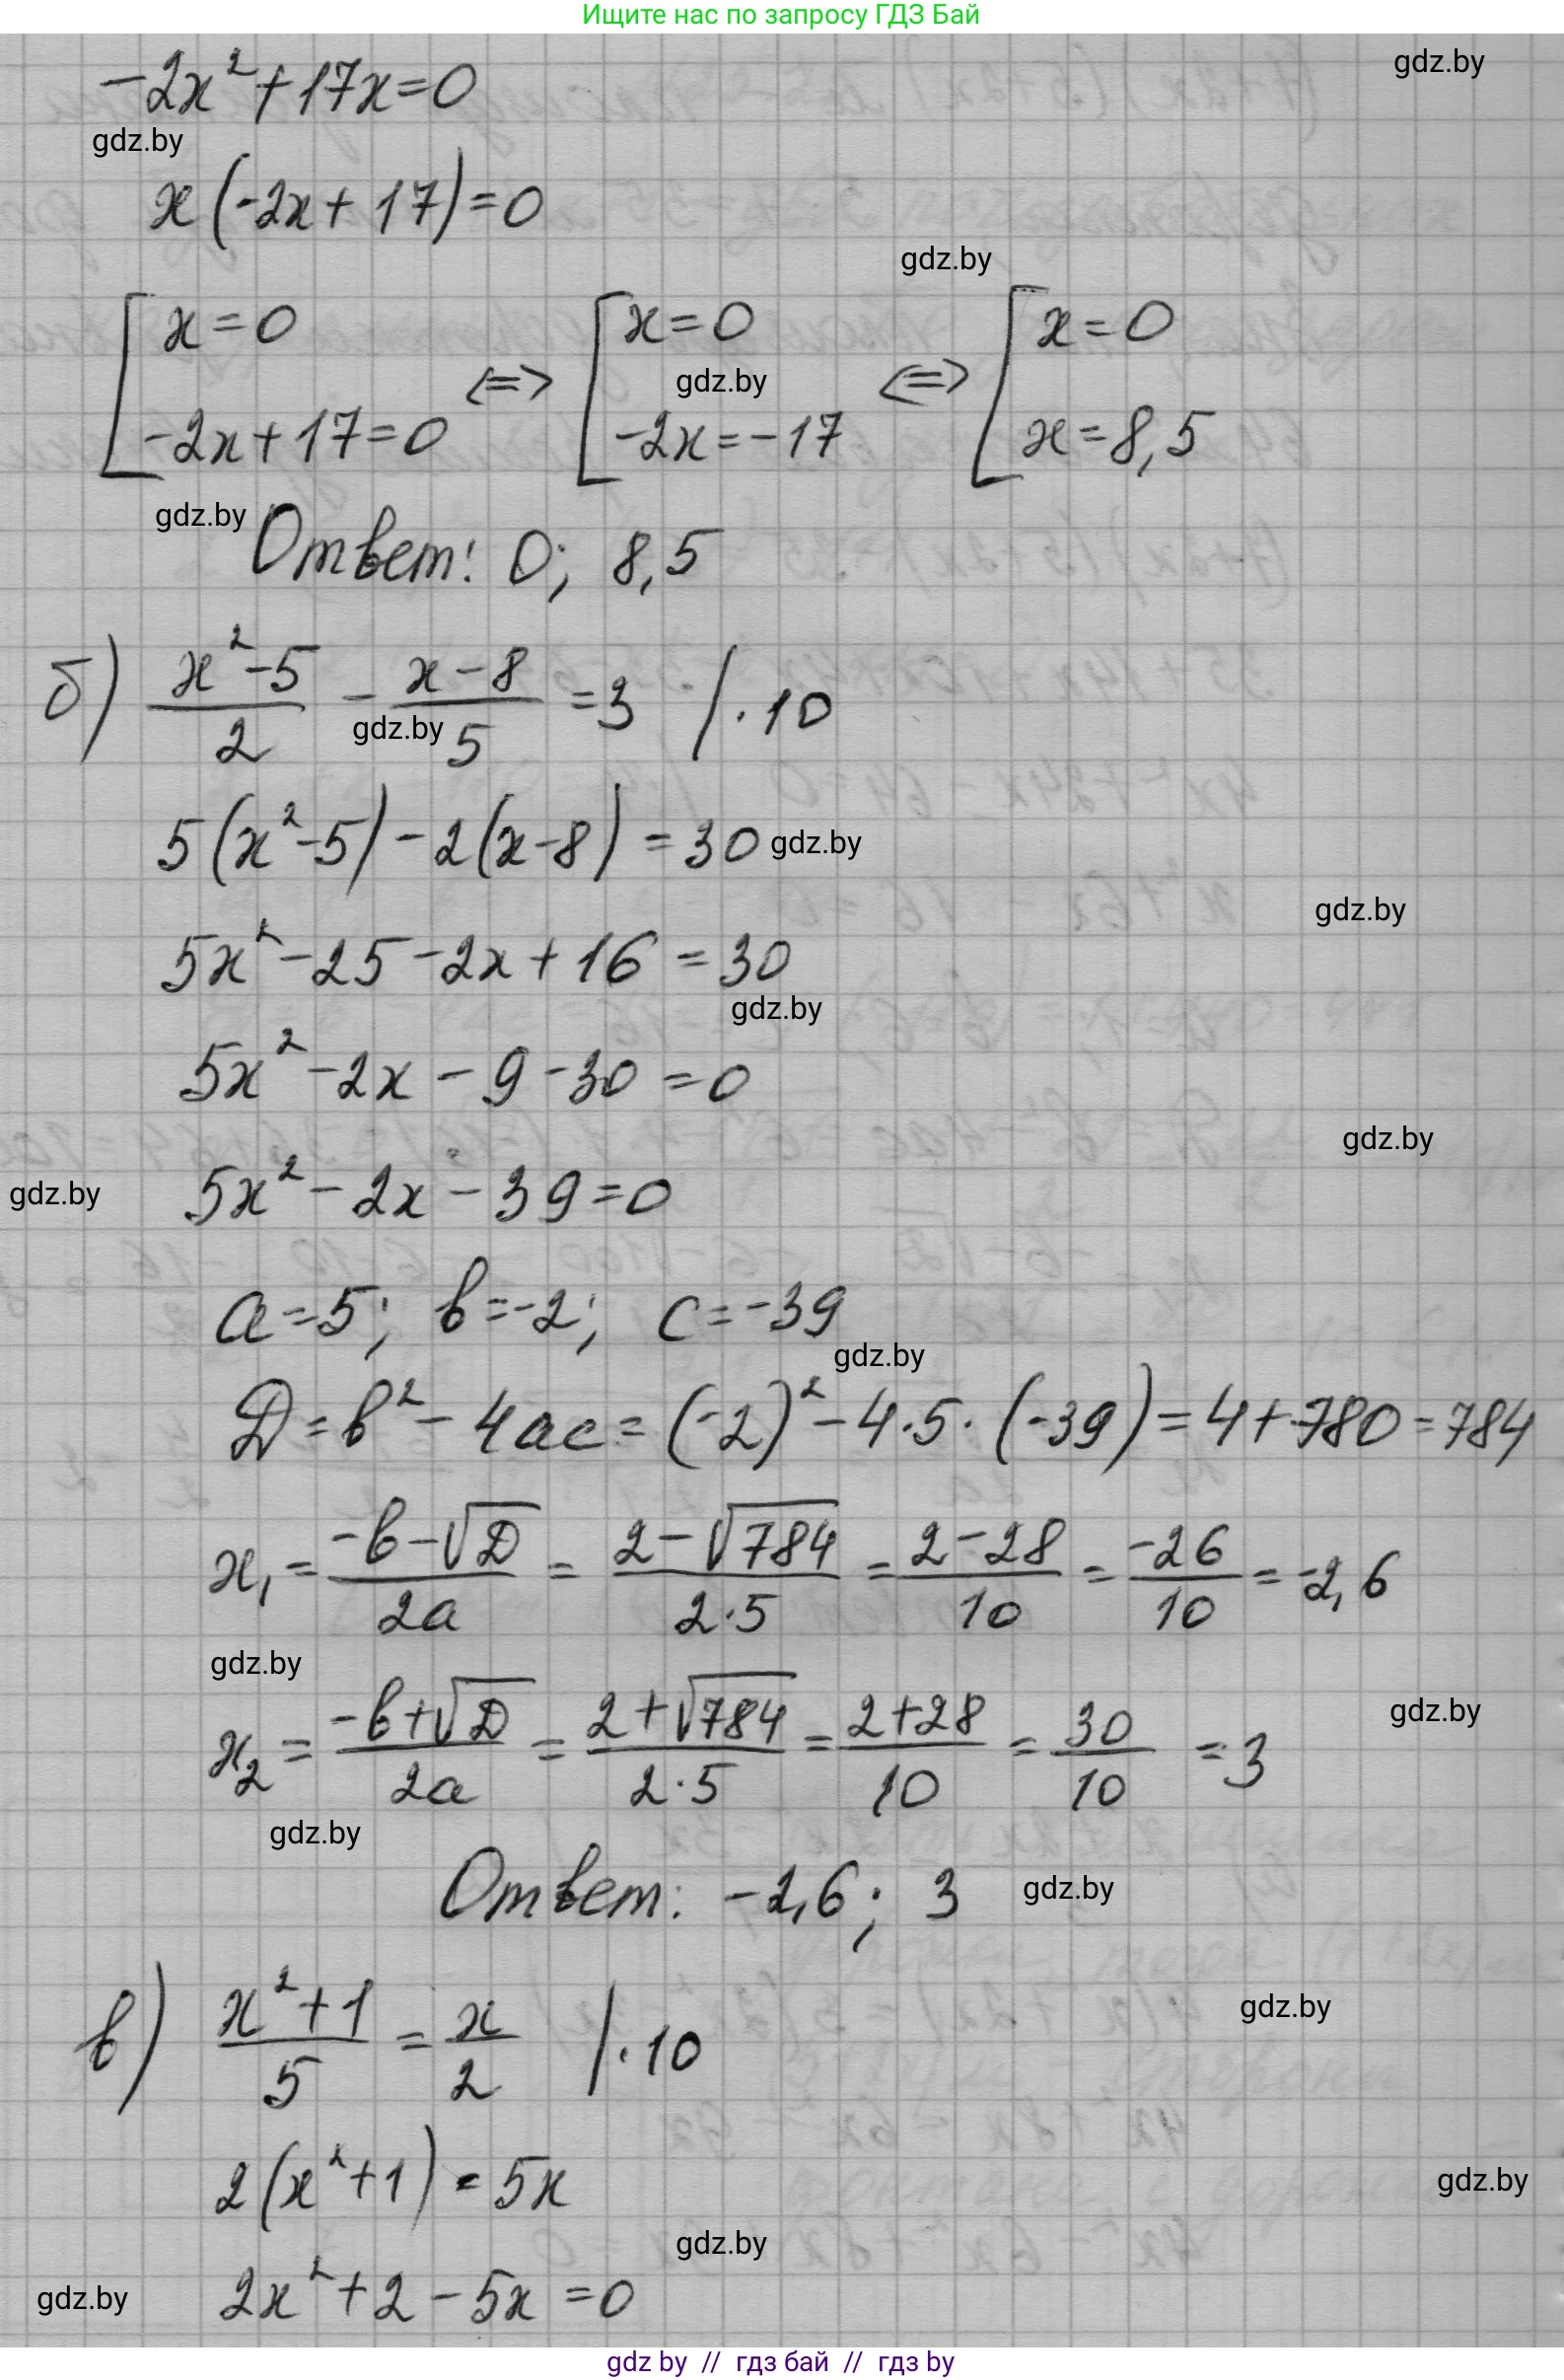 Ищите нас по запросу ГДЗ Бай
gdz.by
-2x² + 17x = 0
gdz.by
x(-2x + 17) = 0
gdz.by
[ x = 0 <=> [ x = 0 <=> [ x = 0
gdz.by
-2x + 17 = 0 -2x = -17 x = 8,5
gdz.by
Ответ: 0; 8,5
б) (x² - 5)/2 - (x - 8)/5 = 3 / · 10
gdz.by
5(x² - 5) - 2(x - 8) = 30
gdz.by
gdz.by
5x² - 25 - 2x + 16 = 30
gdz.by
5x² - 2x - 9 - 30 = 0
gdz.by
gdz.by
5x² - 2x - 39 = 0
a = 5; b = -2; c = -39
gdz.by
D = b² - 4ac = (-2)² - 4 · 5 · (-39) = 4 + 780 = 784
x₁ = (-b - √D)/2a = (2 - √784)/(2 · 5) = (2 - 28)/10 = -26/10 = -2,6
gdz.by
gdz.by
x₂ = (-b + √D)/2a = (2 + √784)/(2 · 5) = (2 + 28)/10 = 30/10 = 3
gdz.by
Ответ: -2,6; 3
gdz.by
gdz.by
в) (x² + 1)/5 = x/2 / · 10
2(x² + 1) = 5x
gdz.by
gdz.by
2x² + 2 - 5x = 0
gdz.by
gdz by // гдз бай // гдз by